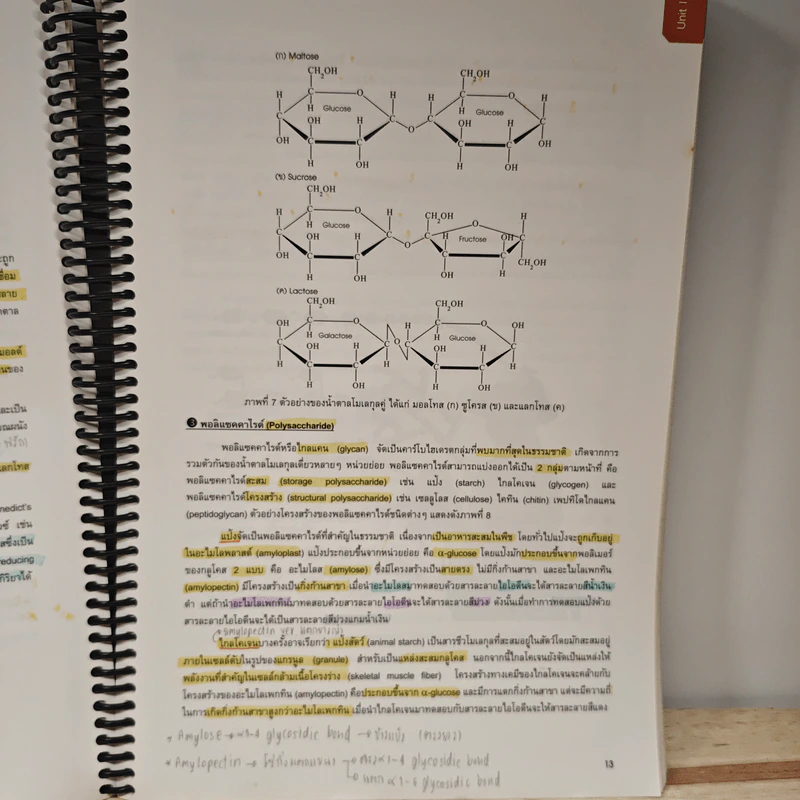 Unit 1
(ก) Maltose
CH2OH CH2OH
H C O H H C O H
H Glucose H Glucose
C OH H C O C OH H C
OH C C C C OH
H OH H OH
(ข) Sucrose
CH2OH
H C O H CH2OH O H
H Glucose C H Fructose OH C
C OH H C O
OH C C C C CH2OH
H OH OH H
(ค) Lactose
CH2OH CH2OH
OH C O H C O OH
H Galactose O H Glucose
C OH H C C OH H C
H C C H C C H
H OH H OH
ภาพที่ 7 ตัวอย่างของน้ำตาลโมเลกุลคู่ ได้แก่ มอลโทส (ก) ซูโครส (ข) และแลกโทส (ค)
3 พอลิแซคคาไรด์ (Polysaccharide)
พอลิแซคคาไรด์หรือไกลแคน (glycan) จัดเป็นคาร์โบไฮเดรตกลุ่มที่พบมากที่สุดในธรรมชาติ เกิดจากการ
รวมตัวกันของน้ำตาลโมเลกุลเดี่ยวหลายๆ หน่วยย่อย พอลิแซคคาไรด์สามารถแบ่งออกได้เป็น 2 กลุ่มตามหน้าที่ คือ
พอลิแซคคาไรด์สะสม (storage polysaccharide) เช่น แป้ง (starch) ไกลโคเจน (glycogen) และ
พอลิแซคคาไรด์โครงสร้าง (structural polysaccharide) เช่น เซลลูโลส (cellulose) ไคทิน (chitin) เพปทิโดไกลแคน
(peptidoglycan) ตัวอย่างโครงสร้างของพอลิแซคคาไรด์ชนิดต่างๆ แสดงดังภาพที่ 8
แป้งจัดเป็นพอลิแซคคาไรด์ที่สำคัญในธรรมชาติ เนื่องจากเป็นอาหารสะสมในพืช โดยทั่วไปแป้งจะถูกเก็บอยู่
ในอะไมโลพลาสต์ (amyloplast) แป้งประกอบขึ้นจากหน่วยย่อย คือ α-glucose โดยแป้งมักประกอบขึ้นจากพอลิเมอร์
ของกลูโคส 2 แบบ คือ อะไมโลส (amylose) ซึ่งมีโครงสร้างเป็นสายตรง ไม่มีกิ่งก้านสาขา และอะไมโลเพกทิน
(amylopectin) มีโครงสร้างเป็นกิ่งก้านสาขา เมื่อนำอะไมโลสมาทดสอบด้วยสารละลายไอโอดีนจะให้สารละลายสีน้ำเงิน
ดำ แต่ถ้านำอะไมโลเพกทินมาทดสอบด้วยสารละลายไอโอดีนจะให้สารละลายสีม่วง ดังนั้นเมื่อทำการทดสอบแป้งด้วย
สารละลายไอโอดีนจะได้เป็นสารละลายสีม่วงแกมน้ำเงิน
amylopectin
ไกลโคเจนบางครั้งอาจเรียกว่า แป้งสัตว์ (animal starch) เป็นสารชีวโมเลกุลที่สะสมอยู่ในสัตว์โดยมักสะสมอยู่
ภายในเซลล์ตับในรูปของแกรนูล (granule) สำหรับเป็นแหล่งสะสมกลูโคส นอกจากนี้ไกลโคเจนยังจัดเป็นแหล่งให้
พลังงานที่สำคัญในเซลล์กล้ามเนื้อโครงร่าง (skeletal muscle fiber) โครงสร้างทางเคมีของไกลโคเจนจะคล้ายกับ
โครงสร้างของอะไมโลเพกทิน (amylopectin) คือประกอบขึ้นจาก α-glucose และมีการแตกกิ่งก้านสาขา แต่จะมีความถี่
ในการเกิดกิ่งก้านสาขาสูงกว่าอะไมโลเพกทิน เมื่อนำไกลโคเจนมาทดสอบกับสารละลายไอโอดีนจะให้สารละลายสีแดง
* Amylose → α1-4 glycosidic bond →
* Amylopectin → α1-4 glycosidic bond
α1-6 glycosidic bond
13